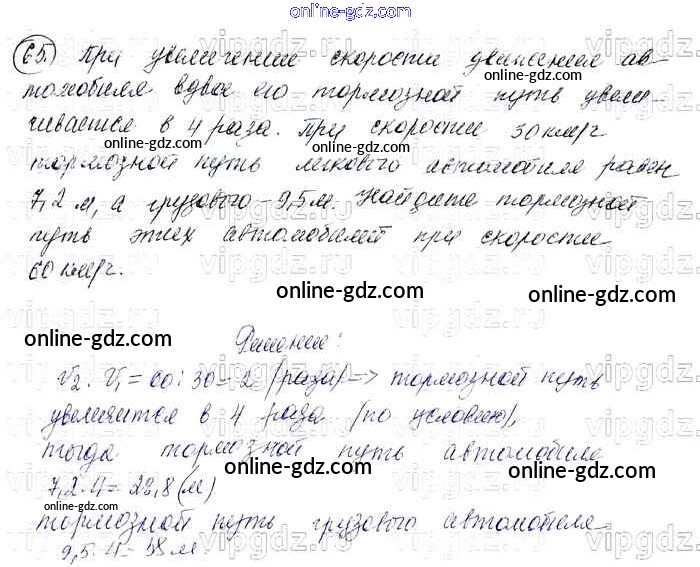 online-gdz.com
65. При увеличении скорости движения ав-
томобиля вдвое его тормозной путь увели-
чивается в 4 раза. При скорости 30 км/ч
тормозной путь легкового автомобиля равен
7,2 м, а грузового - 9,5 м. Найдите тормозной
путь этих автомобилей при скорости
60 км/ч.
online-gdz.com
Решение:
V2 : V1 = 60 : 30 = 2 (раза) => тормозной путь
увеличится в 4 раза (по условию),
тогда тормозной путь автомобиля
7,2 · 4 = 28,8 (м)
тормозной путь грузового автомобиля
9,5 · 4 = 38 м.